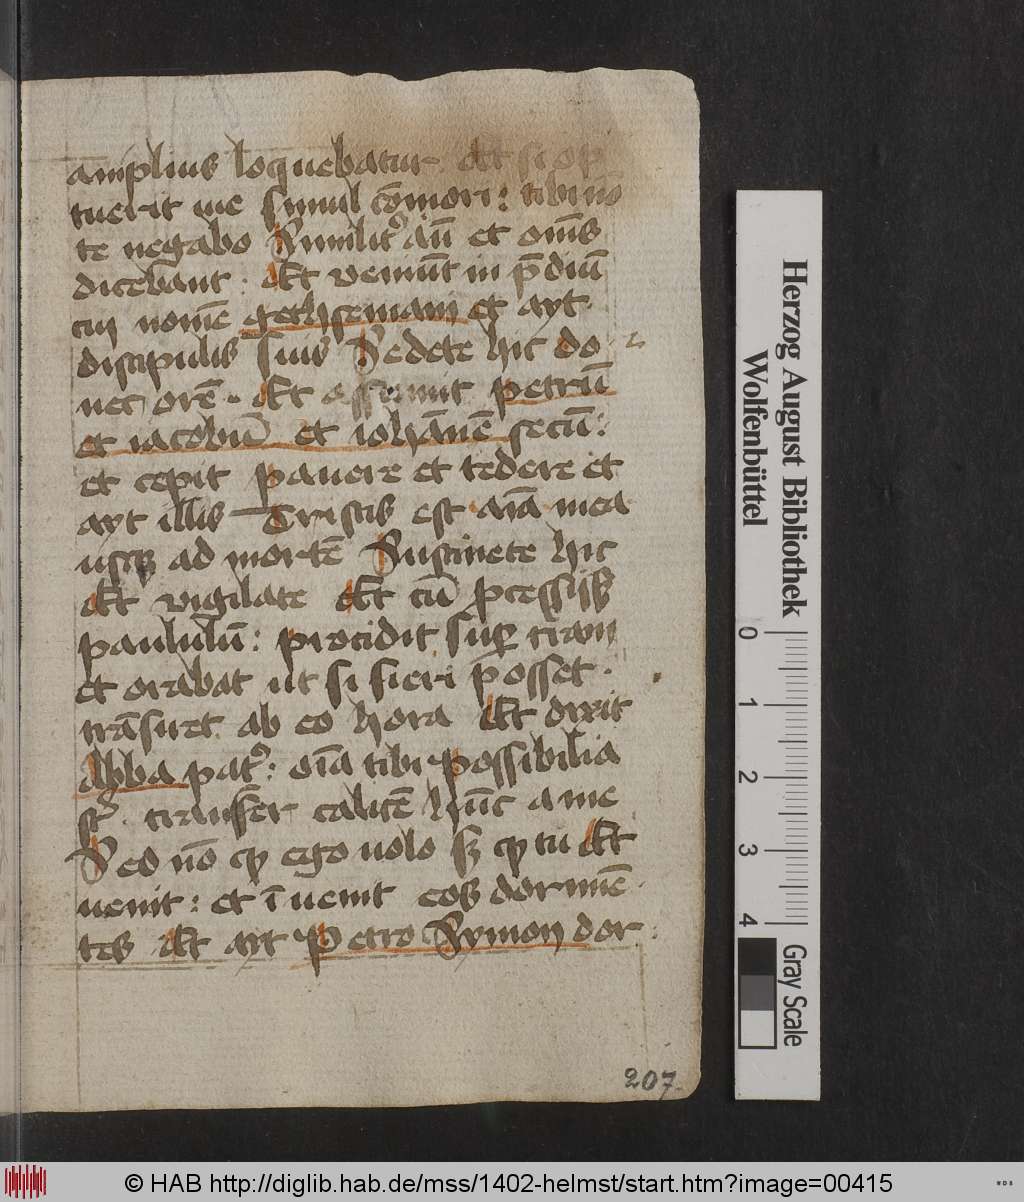 amplius loquebatur Et si opꝫ
tuerit me simul cōmori : tibi nō
te negabo Similit᷒ aūt et om̄s
dicebant . Et veniūt in p̄diū
cui nomē gethsemani et ayt
discipulis suis Sedete hic do-
nec orē . Et assumit petrū
et iacobū et ioh̄annē secū :
et cepit pauere et tedere et
ayt illis Tristis est aīa mea
usqꝫ ad mortē Sustinete hic
Et vigilate Et cū ꝓcessiss
paululū : procidit suꝑ trām
et orabat ut si fieri posset .
trāsiret ab eo hora Et dixit
Abba pat᷒ : oīa tibi possibilia
st̄ . transfer calicē hūc a me
Sed nō qꝫ ego uolo sꝫ qꝫ tu Et
uenit : et īuenit eos dormiē-
tes Et ayt Petro Symon dor
207.
Herzog August Bibliothek
Wolfenbüttel
0 1 2 3 4
Gray Scale
© HAB http://diglib.hab.de/mss/1402-helmst/start.htm?image=00415